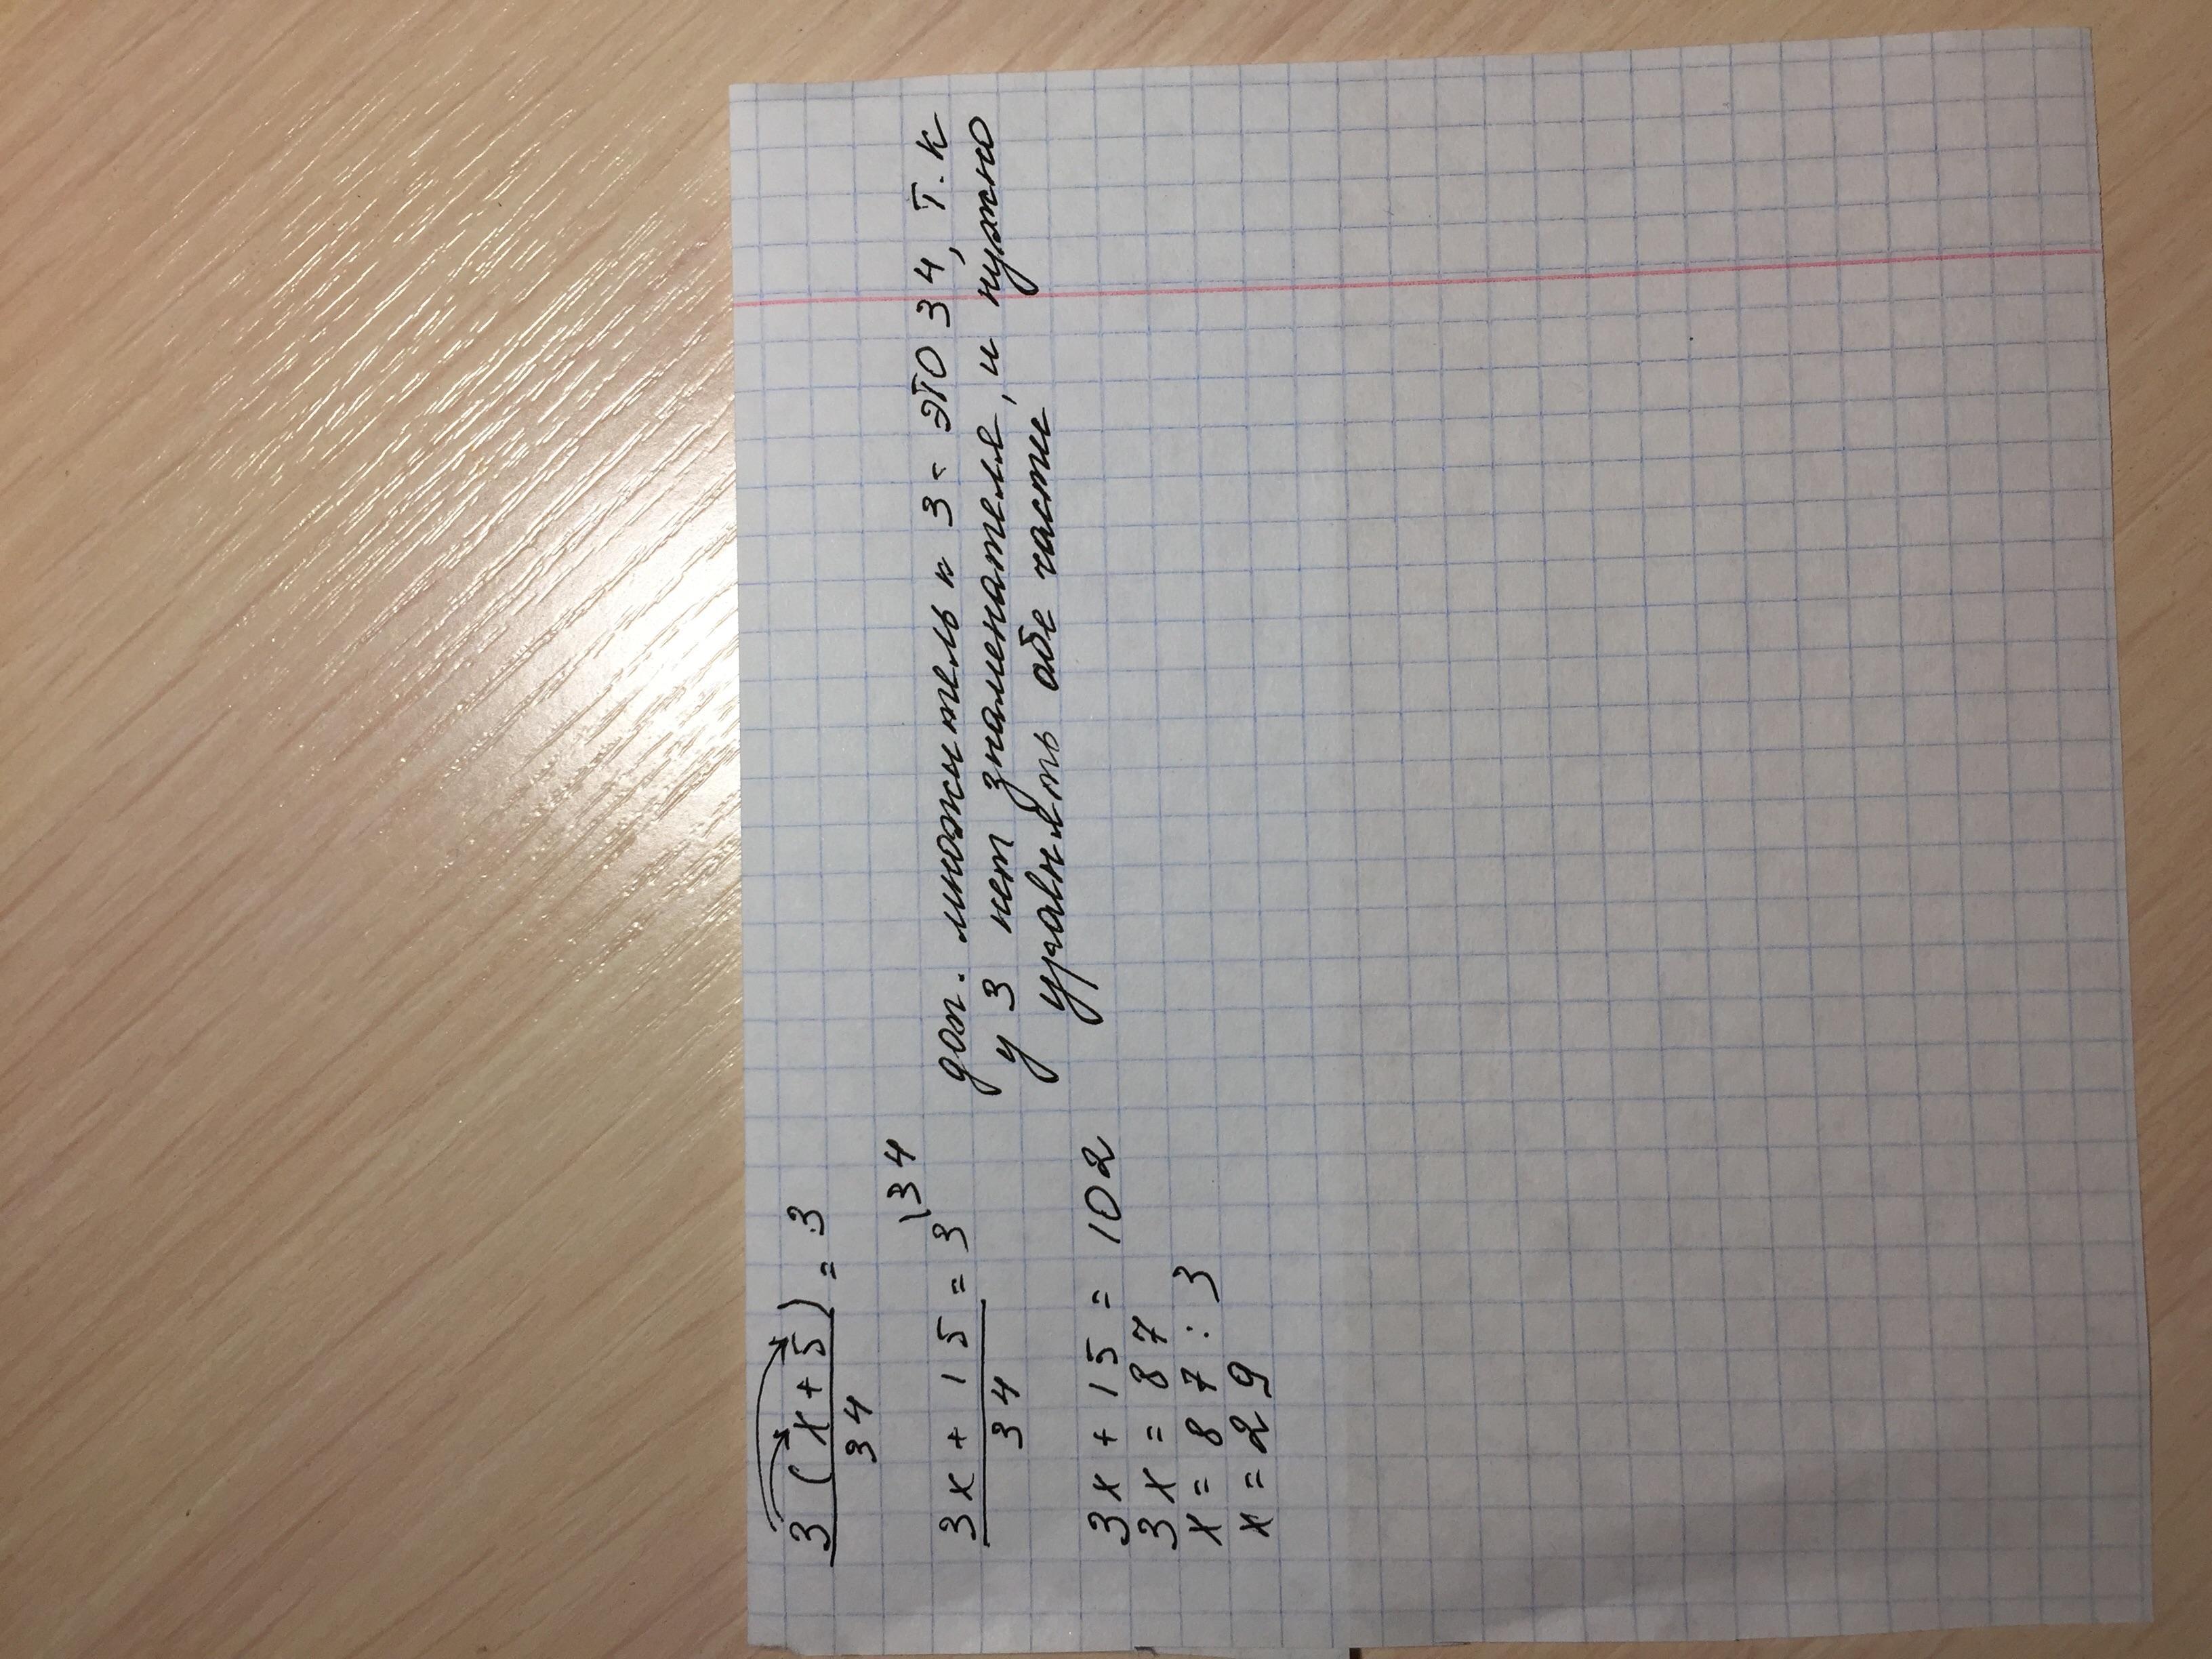 3 (x + 5) = 3
34
\34
3x + 15 = 3
34
доп. множитель к 3 - это 34, т.к
у 3 нет знаменателя, и нужно
уравнять обе части
3x + 15 = 102
3x = 87
x = 87 : 3
x = 29